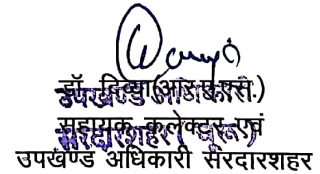 डॉ. दिव्या(आर.ए.एस.)
उपखण्ड अधिकारी
सहायक कलेक्टर एवं
सरदारशहर (चूरू)
उपखण्ड अधिकारी सरदारशहर